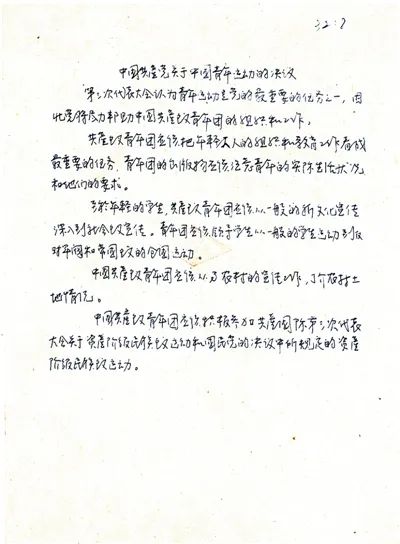 中国共产党关于中国青年运动的决议
第三次代表大会认为青年运动是党的最重要的任务之一，因
此党将尽力帮助中国共产主义青年团的组织和工作。
共产主义青年团应该把年轻工人的组织和教育工作看成
最重要的任务，青年团的出版物应该注意青年的实际生活状况
和他们的要求。
年轻的学生，共产主义青年团应该从一般的新文化宣传
深入到社会主义宣传。青年团应该领导学生从一般的学生运动到反
对军阀和帝国主义的全国运动。
中国共产主义青年团应该从事农村的宣传工作，了解农村土
地情况。
中国共产主义青年团应该积极参加共产国际第三次代表
大会关于资产阶级民族主义运动和国民党的决议中所规定的资产
阶级民族主义运动。